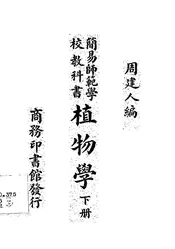 周建人編
簡易師範學
校教科書
植物學 下册
商務印書館發行